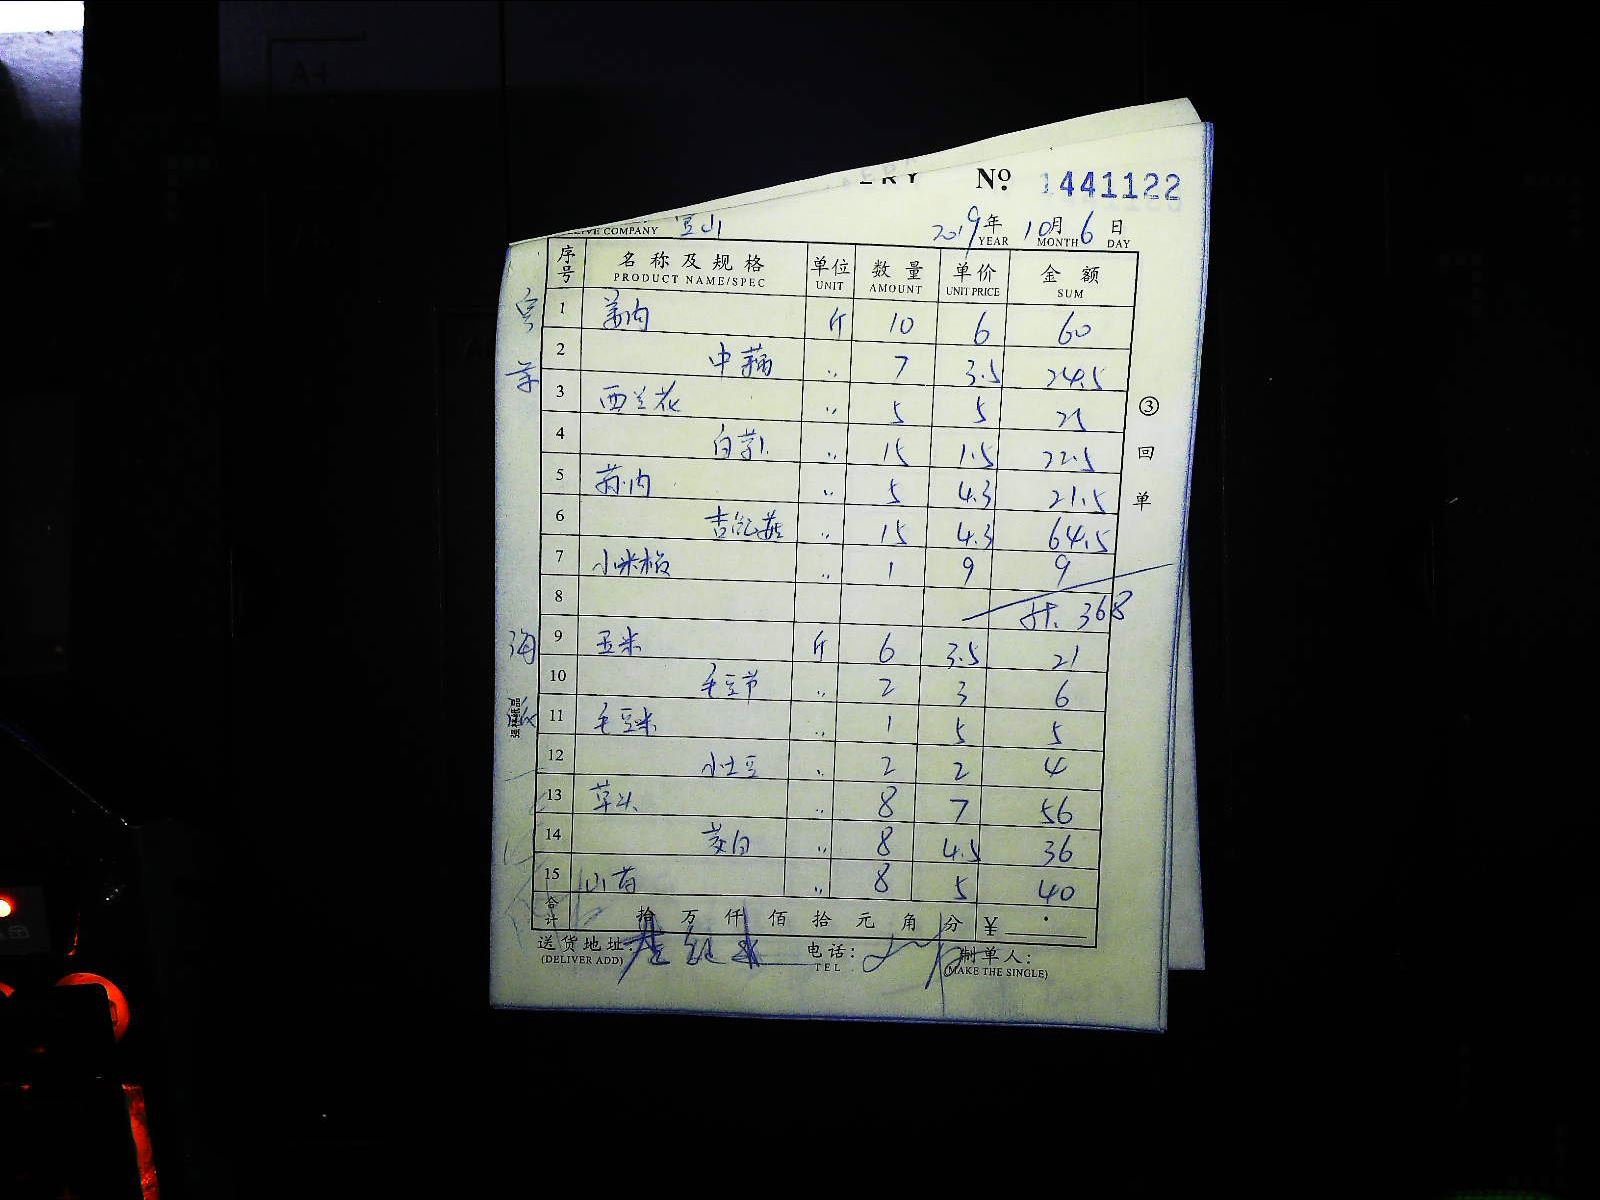 ERY No. 1441122
COMPANY 宜山 2019年 10月 6日
YEAR MONTH DAY
序号 名称及规格 单位 数量 单价 金额
PRODUCT NAME/SPEC UNIT AMOUNT UNIT PRICE SUM
1 斤 10 6 60
2 中藕 〃 7 3.5 24.5
3 西兰花 〃 5 5 25
4 〃 15 1.5 22.5
5 〃 5 4.3 21.5
6 〃 15 4.3 64.5
7 小米椒 〃 1 9 9
8 计. 368
9 玉米 斤 6 3.5 21
10 毛豆节 〃 2 3 6
11 毛豆米 〃 1 5 5
12 小土豆 〃 2 2 4
13 草头 〃 8 7 56
14 茭白 〃 8 4.5 36
15 山药 〃 8 5 40
合计 拾 万 仟 佰 拾 元 角 分 ¥
送货地址: 电话: 制单人:
(DELIVER ADD) TEL (MAKE THE SINGLE)
③回单